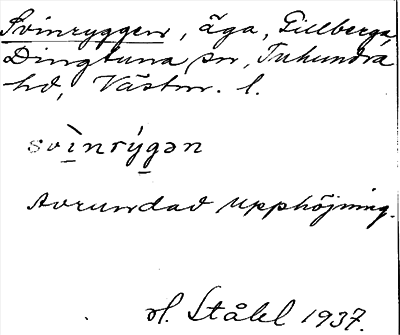 Svinryggen, äga, Gillberga,
Dingtuna sn, Tuhundra
hd, Västm. l.
svìnrýgən
Avrundad upphöjning.
Stålel 1937.